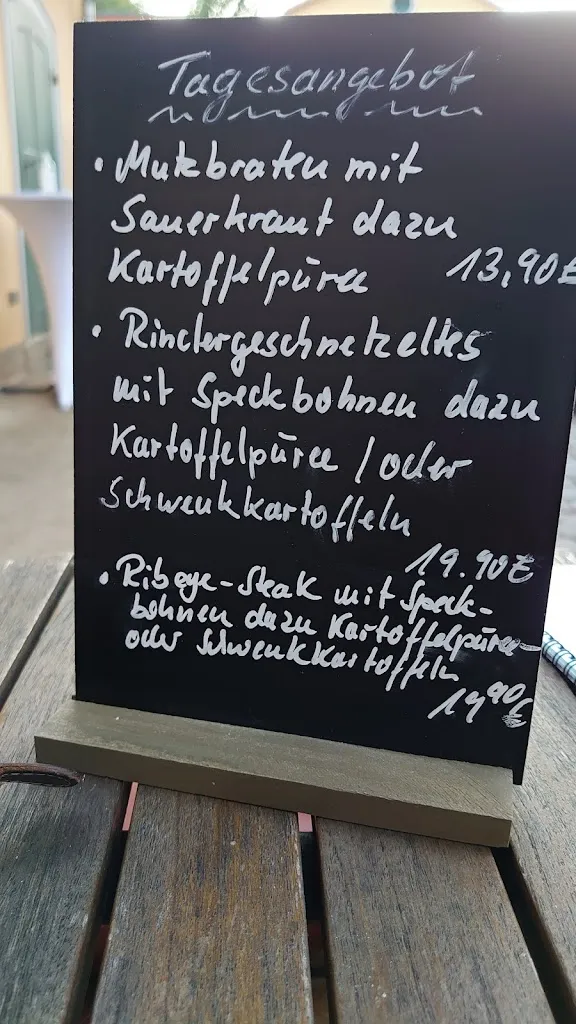 Tagesangebot
• Mutzbraten mit
Sauerkraut dazu
Kartoffelpüree 13,90€
• Rindergeschnetzeltes
mit Speckbohnen dazu
Kartoffelpüree / oder
Schwenkkartoffeln
19.90€
• Ribeye-Steak mit Speck-
bohnen dazu Kartoffelpüree
oder Schwenkkartoffeln